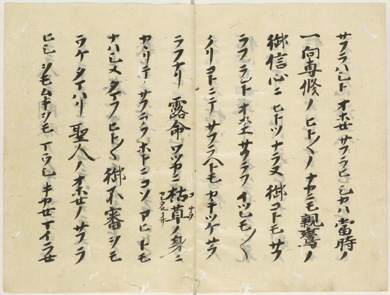 サフラハシト オホセサフラヒシカハ當時ノ
一向専修ノヒト〱ノナカニモ親鸞ノ
御信心ニ ヒトツナラヌ 御コトモ サフ
ラフラント オホエ サフラフ イツレモ〱
クリコトニテ サフラヘトモ カキツケ サフ
ラフナリ 露命ワツカニ 枯草ノ身ニ
カヽリテ サフラフ ホトニコソ アヒトモ
ナハシメ タマフ ヒト〱 御不審ヲモ
ウケタマハリ 聖人ノ オホセノ サフラ
ヒシ オモムキヲモ マウシ キカセ マイラセ